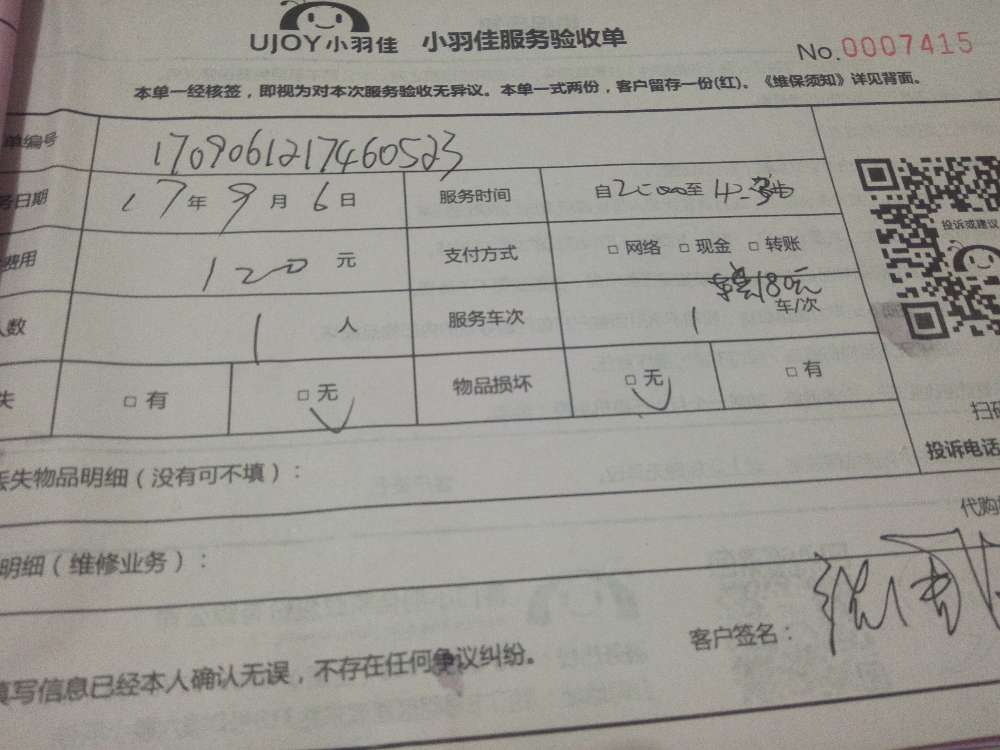 UJOY小羽佳 小羽佳服务验收单
No.0007415
本单一经核签，即视为对本次服务验收无异议。本单一式两份，客户留存一份(红)。《维保须知》详见背面。
单编号 1709061217460523
务日期 17年9月6日 服务时间 自 至
费用 120元 支付方式 □ 网络 □ 现金 □ 转账
180元
人数 1人 服务车次 1 车/次
失 □ 有 □ 无 物品损坏 □ 无 □ 有
投诉或建议
扫码
投诉电话
丢失物品明细（没有可不填）：
代购
明细（维修业务）：
客户签名：
填写信息已经本人确认无误，不存在任何争议纠纷。